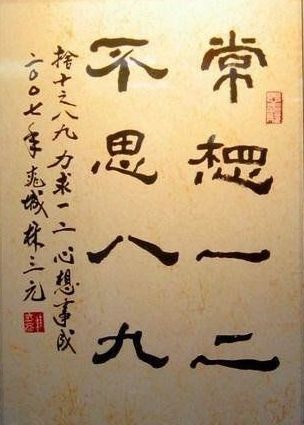 常想一二
不思八九
捨十之八九力求一二心想事成
二〇〇七年 城林三元